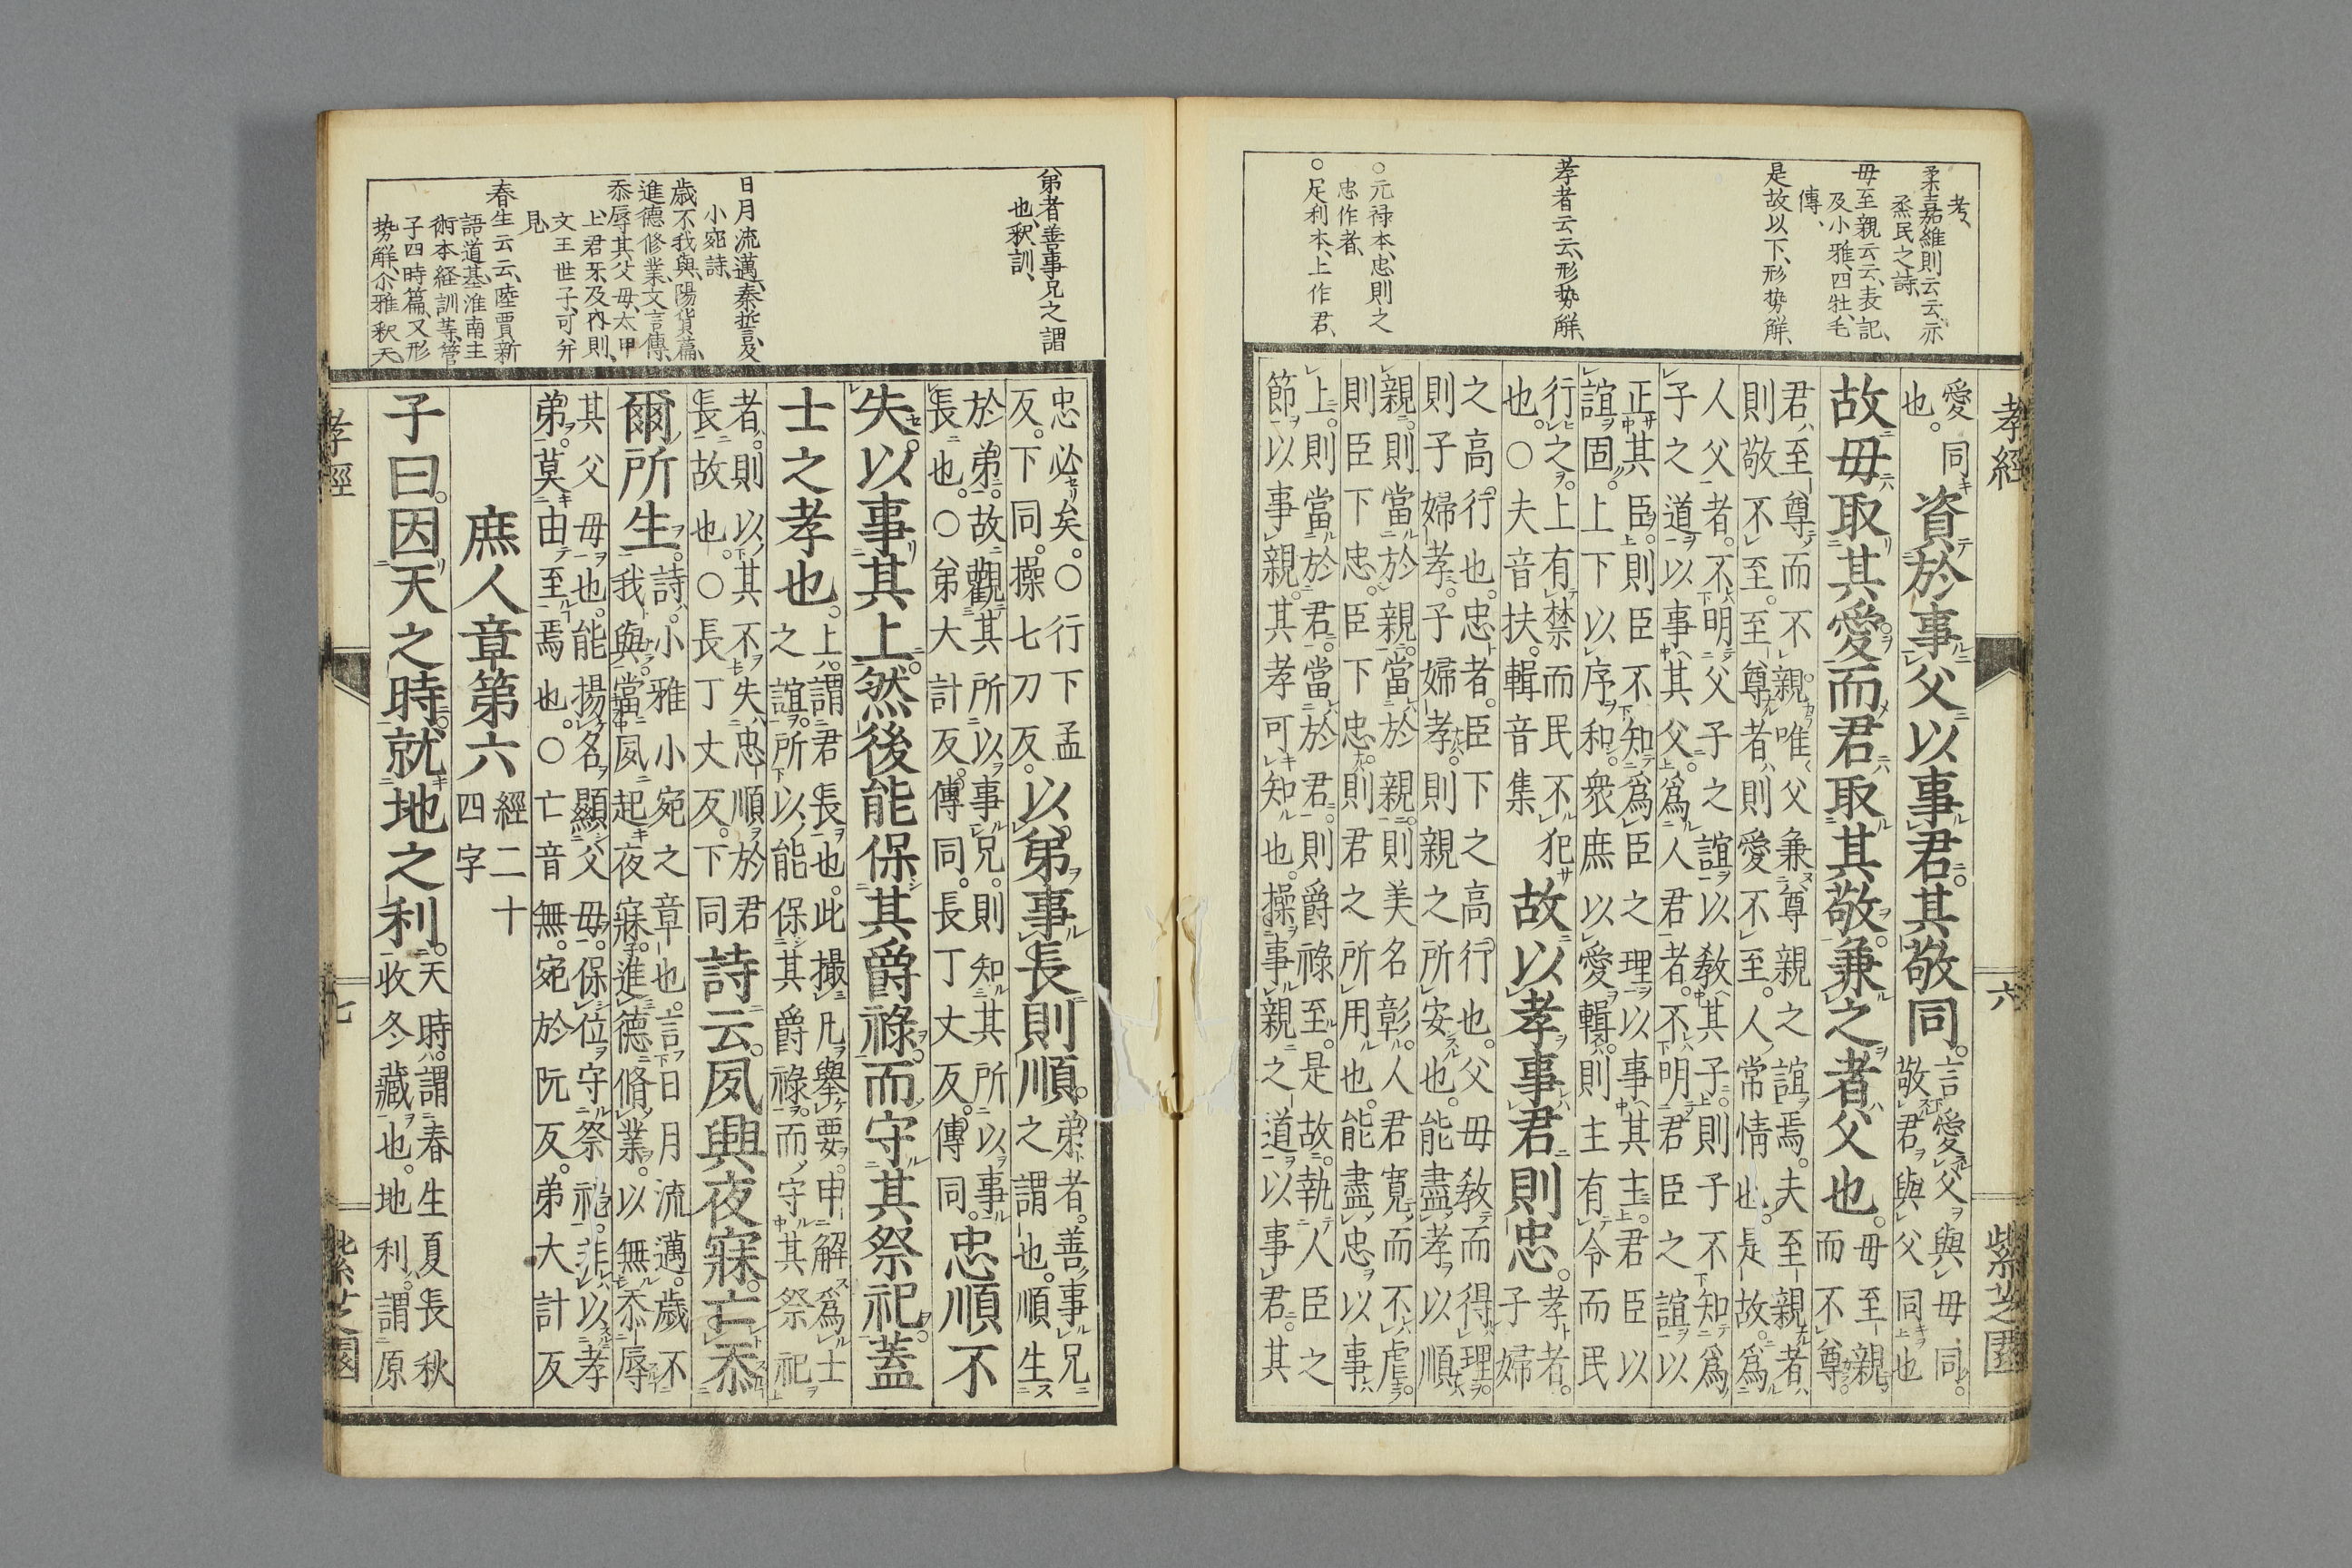 考、
柔嘉維則云云、亦
烝民之詩、
毋至親云云、表記、
及小雅、四牡、毛
傳、
是故以下、形勢解、
孝者云云、形勢解、
○元禄本、忠則之
忠作者、
○足利本、上作君、
孝經 六 紫芝園
愛同
也。
資於事父以事君。其敬同。
言愛父與毋同。
敬君與父同也
故毋取其愛。而君取其敬。兼之者父也。
毋至親
而不尊
君至尊而不親。唯父兼尊親之誼焉。夫至親者
則敬不至。至尊者則愛不至。人常情也。是故。爲
人父者。不明父子之誼以敎其子。則子不知爲
子之道以事其父。爲人君者。不明君臣之誼以
正其臣。則臣不知爲臣之理以事其主。君臣以
誼固。上下以序和。衆庶以愛輯。則主有令而民
行之。上有禁而民不犯
也。○夫音扶。輯音集
故以孝事君則忠。
孝者。
子婦
之高行也。忠者。臣下之高行也。父毋敎而得理。
則子婦孝。子婦孝。則親之所安也。能盡孝以順
親。則當於親。當於親。則美名彰。人君寬而不虐。
則臣下忠。臣下忠。則君之所用也。能盡忠以事
上。則當於君。當於君。則爵祿至。是故。執人臣之
節以事親。其孝可知也。操事親之道以事君。其
弟者善事兄之謂
也、釈訓、
日月流邁、秦誓、及
小宛詩、
歳不我與、陽貨篇、
進德修業、文言傳、
忝辱其父毋、太甲
上、君牙、及内則、
文王世子、可并
見、
春生云云、陸賈新
語道基、淮南主
術本経訓等、管
子四時篇、又形
勢解、尒雅釈天、
忠必矣。○行下孟
反。下同。操七刀反。
以弟事長則順。
弟者。善事兄
之謂也。順生
於弟。故觀其所以事兄。則知其所以事
長也。○弟大計反。傳同。長丁丈反。傳同。
忠順不
失。以事其上。然後能保其爵祿。而守其祭祀。蓋
士之孝也。
上謂君長也。此撮凡舉要。申解爲士
之誼。所以能保其爵祿。而守其祭祀
者。則以其不失忠順於君
長故也。○長丁丈反。下同
詩云。夙興夜寐。亡忝
爾所生。
詩。小雅小宛之章也。言日月流邁。歲不
我與。當夙起夜寐。進德脩業。以無忝辱
其父毋也。能揚名顯父毋。保位守祭祀。非以孝
弟。莫由至焉也。○亡音無。宛於阮反。弟大計反
庶人章第六
經二十
四字
子曰。因天之時。就地之利。
天時。謂春生夏長秋
收冬藏也。地利。謂原
孝經 七 紫芝園